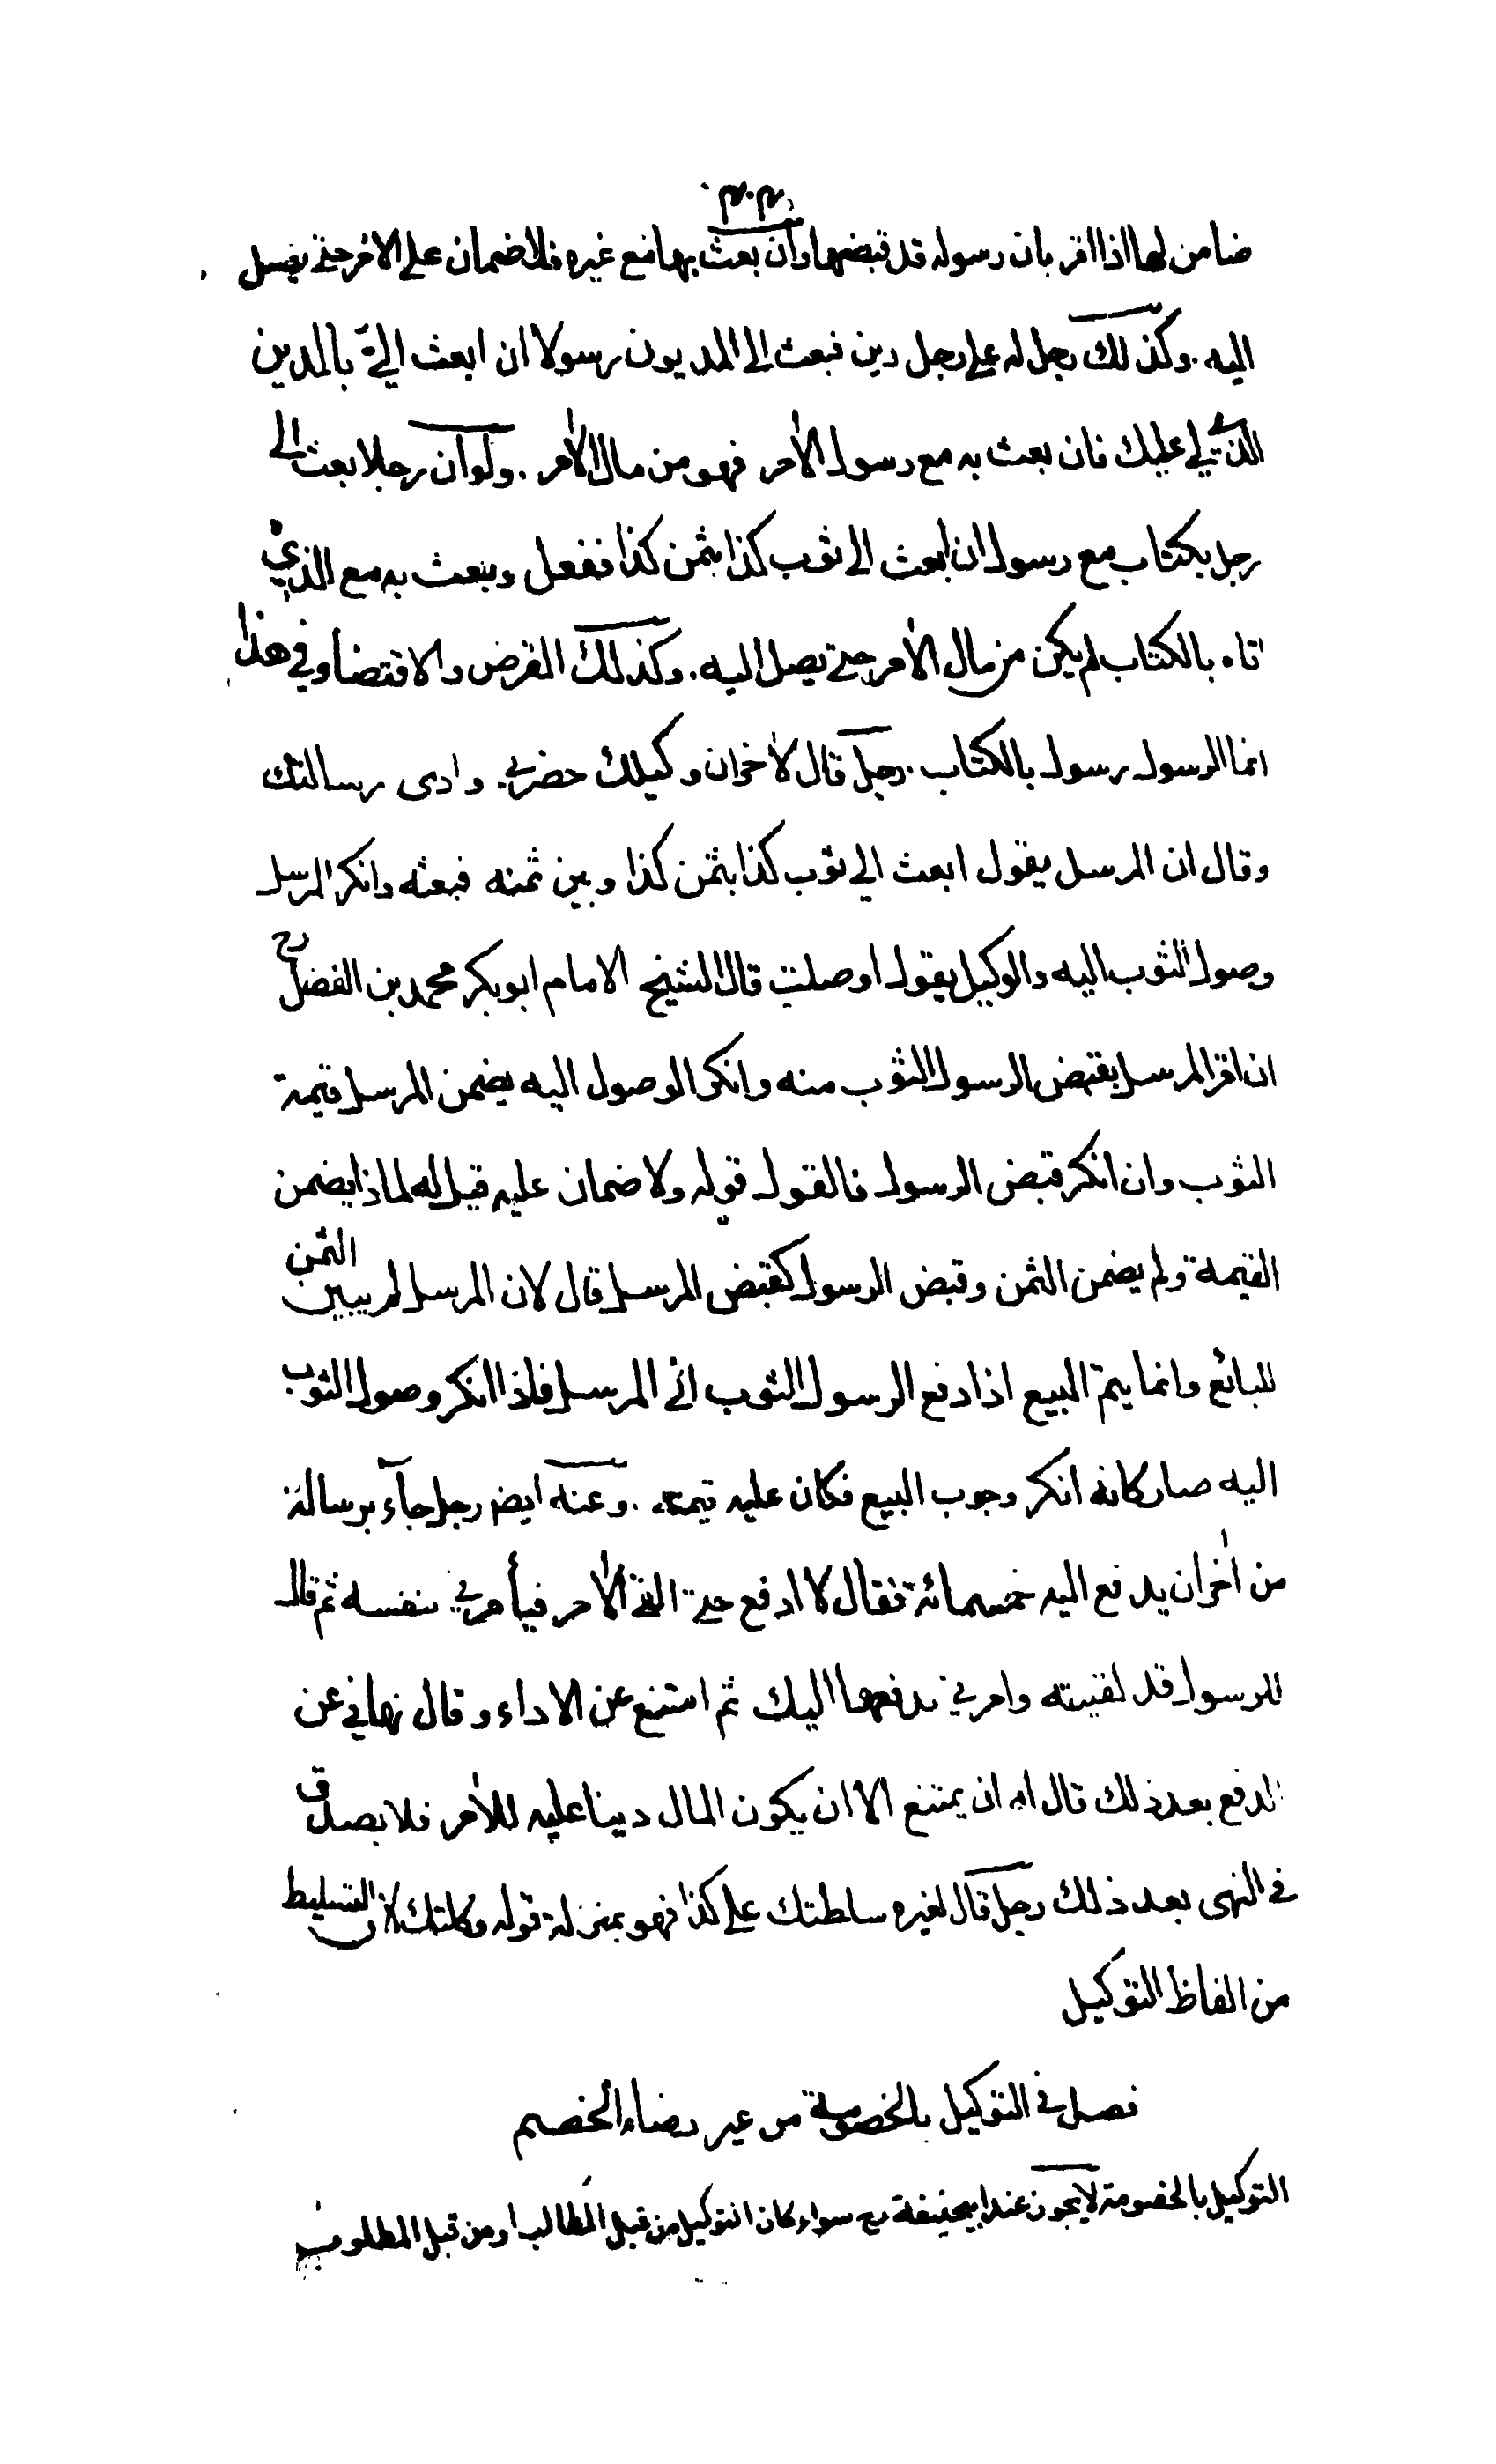 ٣٠٣
ضامن لها اذا اقر بان رسوله قد قبضها وان بعث بها مع غيره فلا ضمان على الآمر حتى يصل
اليه . وكذلك رجل له على رجل دين فبعث الى المديون رسولا ان ابعث اليّ بالدين
الذي لي عليك فان بعث به مع رسول الآمر فهو من مال الآمر . ولو ان رجلا بعث الى
رجل بكتاب مع رسول ان ابعث الى ثوب كذا بثمن كذا ففعل وبعث به مع الذي
اتاه بالكتاب لم يكن من مال الآمر حتى يصل اليه . وكذلك القرض والاقتضاء وفي هذا
انما الرسول رسول بالكتاب . رجل قال لآخر ان وكيلك حضرني وادى رسالتك
وقال ان المرسل يقول ابعث الى ثوب كذا بثمن كذا وبين ثمنه فبعثه وانكر المرسل
وصول الثوب اليه والوكيل يقول اوصلت قال الشيخ الامام ابو بكر محمد بن الفضل رح
ان اقر المرسل بقبض الرسول الثوب منه وانكر الوصول اليه يضمن المرسل قيمة
الثوب وان انكر قبض الرسول فالقول قوله ولا ضمان عليه قيل له لماذا يضمن
القيمة ولم يضمن الثمن وقبض الرسول كقبض المرسل قال لان المرسل لم يبين الثمن
للبائع وانما يتم البيع اذا دفع الرسول الثوب الى المرسل فاذا انكر وصول الثوب
اليه صار كانه انكر وجوب البيع فكان عليه قيمته . وعنه ايضا رجل جاء برسالة
من آخر ان يدفع اليه خمسمائة فقال لا ادفع حتى القى الآمر فيأمرني بنفسه ثم قال
للرسول قد لقيته وامرني بدفعها اليك ثم امتنع عن الاداء وقال نهاني عن
الدفع بعد ذلك قال له ان يمتنع الا ان يكون المال دينا عليه للآمر فلا يصدق
في النهى بعد ذلك رجل قال لغيره سلطتك على كذا فهو بمنزلة قوله وكلتك لان التسليط
من الفاظ التوكيل
فصل في التوكيل بالخصومة من غير رضاء الخصم
التوكيل بالخصومة لا يجوز عند ابيحنيفة رح سواء كان التوكيل من قبل الطالب او من قبل المطلوب